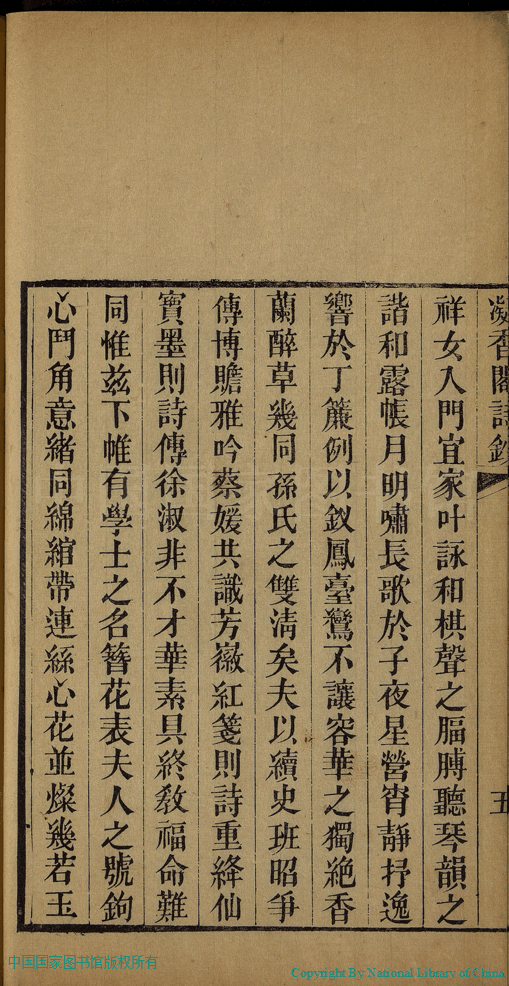 凝香閣詩鈔
五
祥女入門宜家叶詠和棋聲之腷膊聽琴韻之
諧和露帳月明嘯長歌於子夜星營宵靜抒逸
響於丁簾例以釵鳳臺鸞不讓容華之獨絶香
蘭醉草幾同孫氏之雙清矣夫以續史班昭爭
傳博贍雅吟蔡媛共識芳徽紅箋則詩重絳仙
寶墨則詩傳徐淑非不才華素具終教福命難
同惟兹下帷有學士之名簪花表夫人之號鉤
心鬥角意緒同綿綰帶連絲心花並燦幾若玉
中国国家图书馆版权所有
Copyright By National Library of China